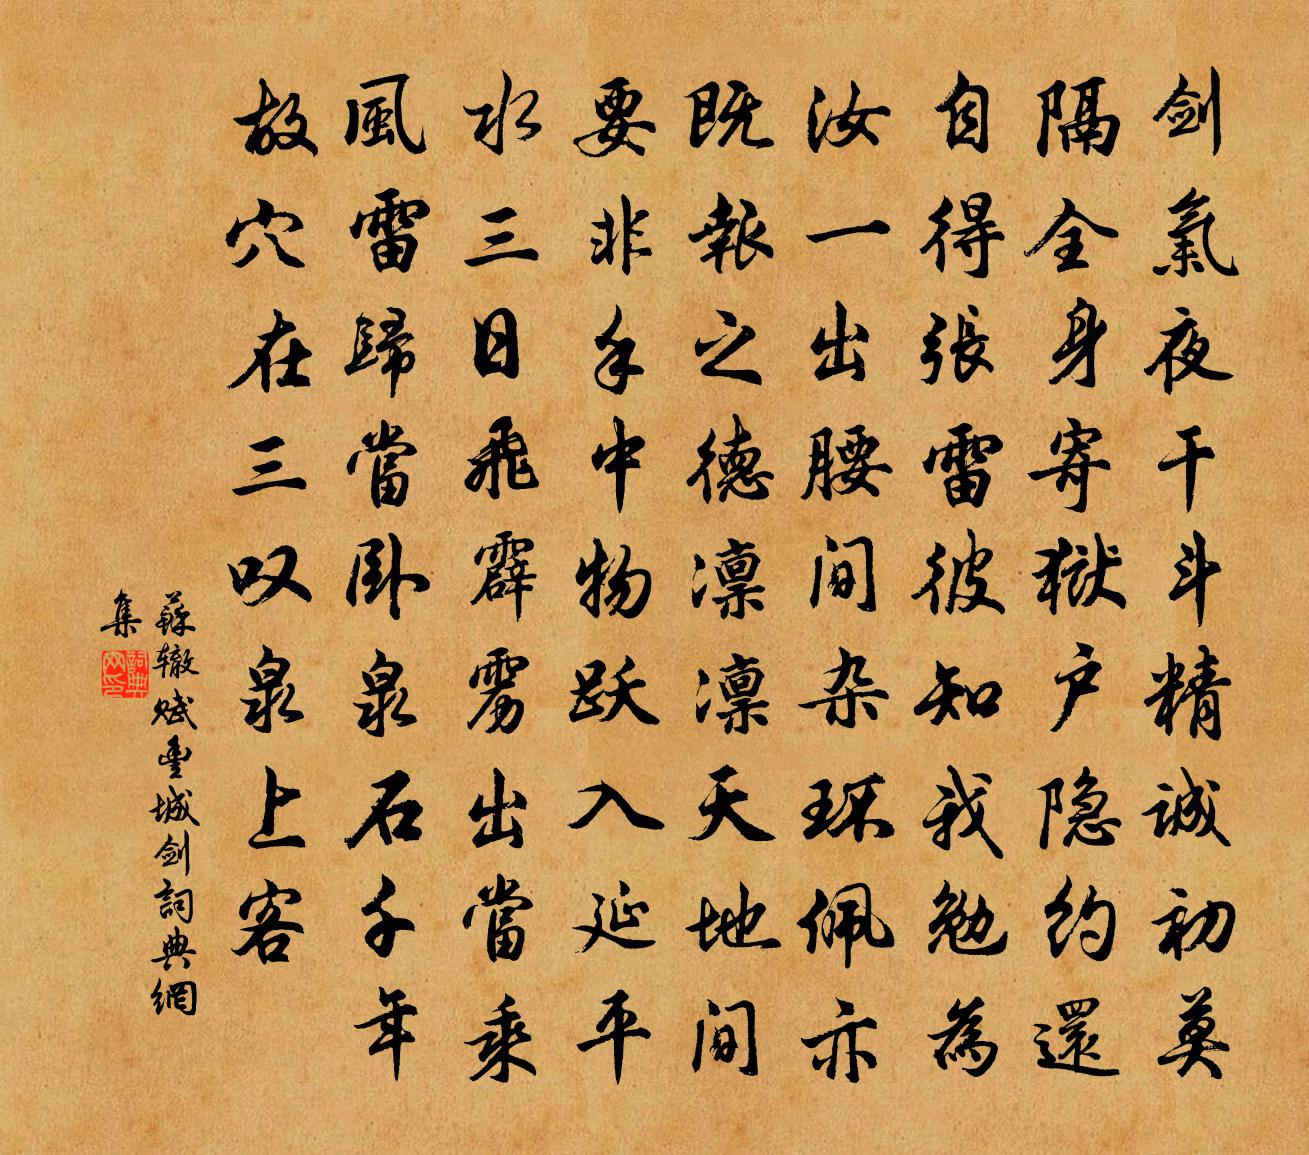 剑氣夜干斗精誠初莫
隔全身寄獄户隐约還
自得張雷彼知我勉為
汝一出腰间杂环佩亦
既報之德凛凛天地间
要非手中物跃入延平
水三日飛霹雳出當乘
風雷歸當卧泉石千年
故穴在三叹泉上客
蘇辙赋豊城剑詞典網
集
詞典网印